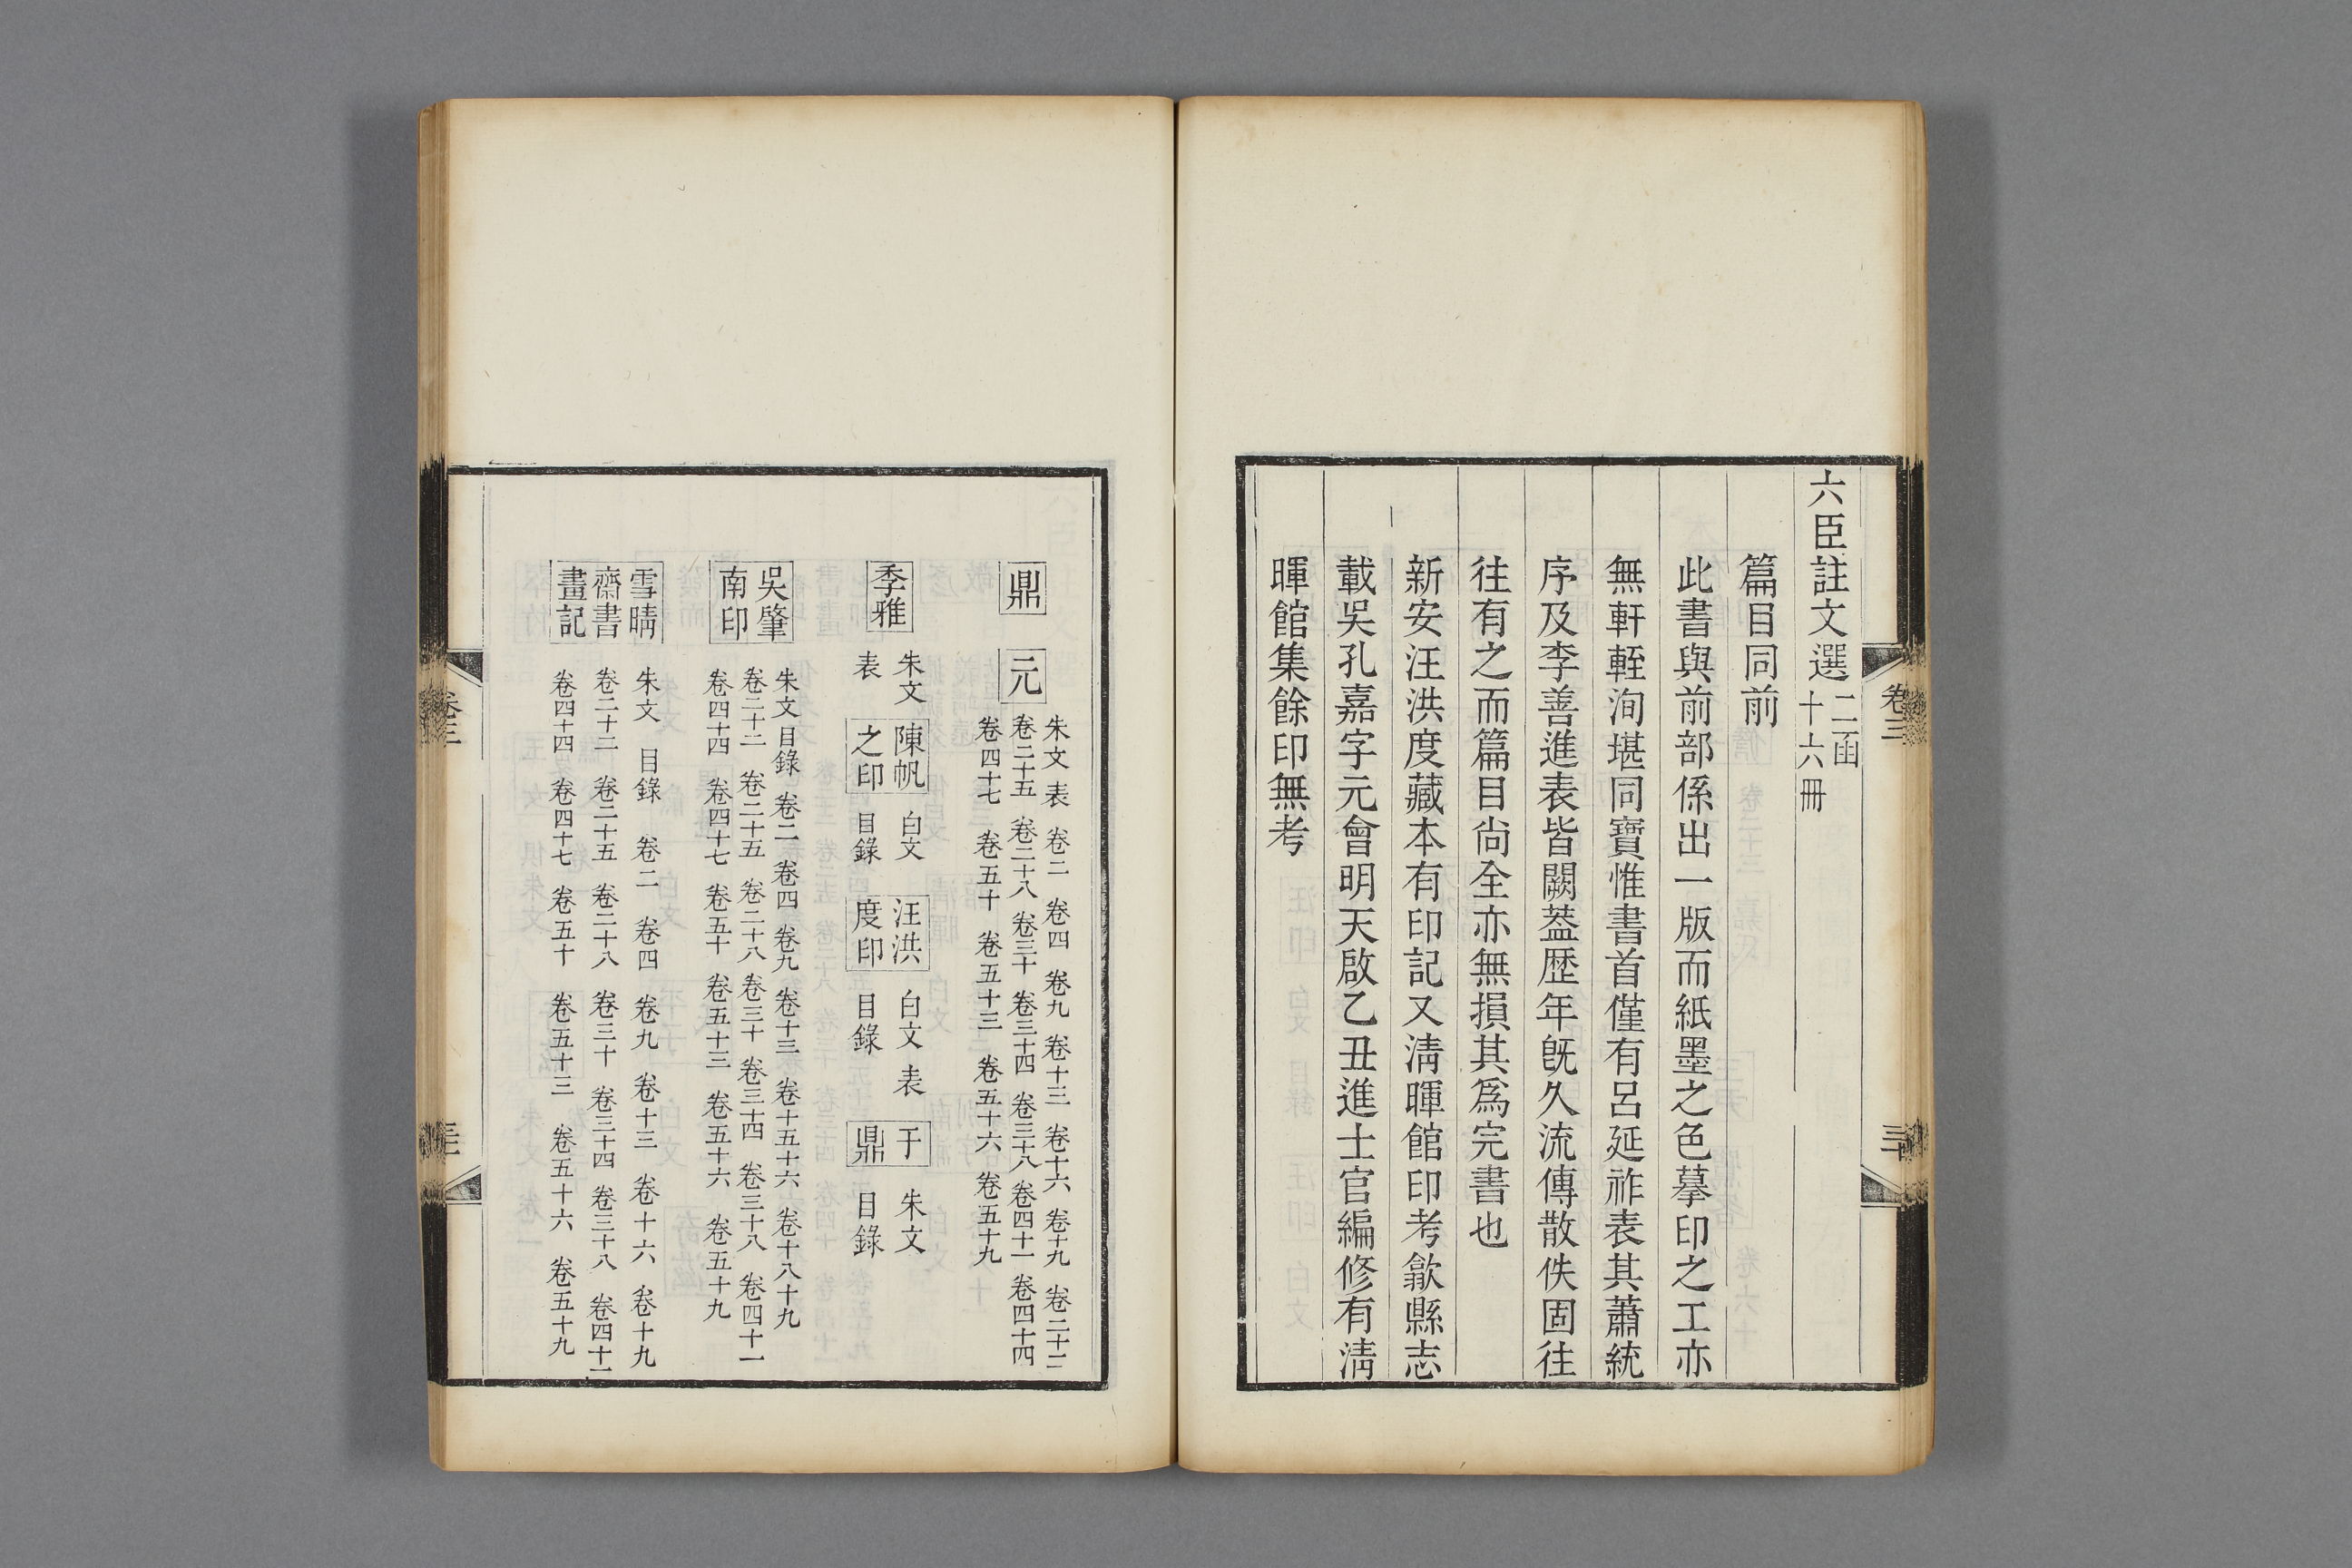 六臣註文選二函
十六冊
篇目同前
此書與前部係出一版而紙墨之色摹印之工亦
無軒輊洵堪同寶惟書首僅有呂延祚表其蕭統
序及李善進表皆闕葢歷年旣久流傳散佚固往
往有之而篇目尙全亦無損其爲完書也
新安汪洪度藏本有印記又淸暉館印考歙縣志
載吳孔嘉字元會明天啟乙丑進士官編修有淸
暉館集餘印無考
卷三
三十
鼎
元
朱文 表 卷二 卷四 卷九 卷十三 卷十六 卷十九 卷二十二
卷二十五 卷二十八 卷三十 卷三十四 卷三十八 卷四十一 卷四十四
卷四十七 卷五十 卷五十三 卷五十六 卷五十九
季雅
朱文
表
陳帆
之印
白文
目錄
汪洪
度印
白文 表
目錄
于
鼎
朱文
目錄
吳肇
南印
朱文 目錄 卷二 卷四 卷九 卷十三 卷十五十六 卷十八十九
卷二十二 卷二十五 卷二十八 卷三十 卷三十四 卷三十八 卷四十一
卷四十四 卷四十七 卷五十 卷五十三 卷五十六 卷五十九
雪晴
齋書
畫記
朱文 目錄 卷二 卷四 卷九 卷十三 卷十六 卷十九
卷二十二 卷二十五 卷二十八 卷三十 卷三十四 卷三十八 卷四十一
卷四十四 卷四十七 卷五十 卷五十三 卷五十六 卷五十九
卷三